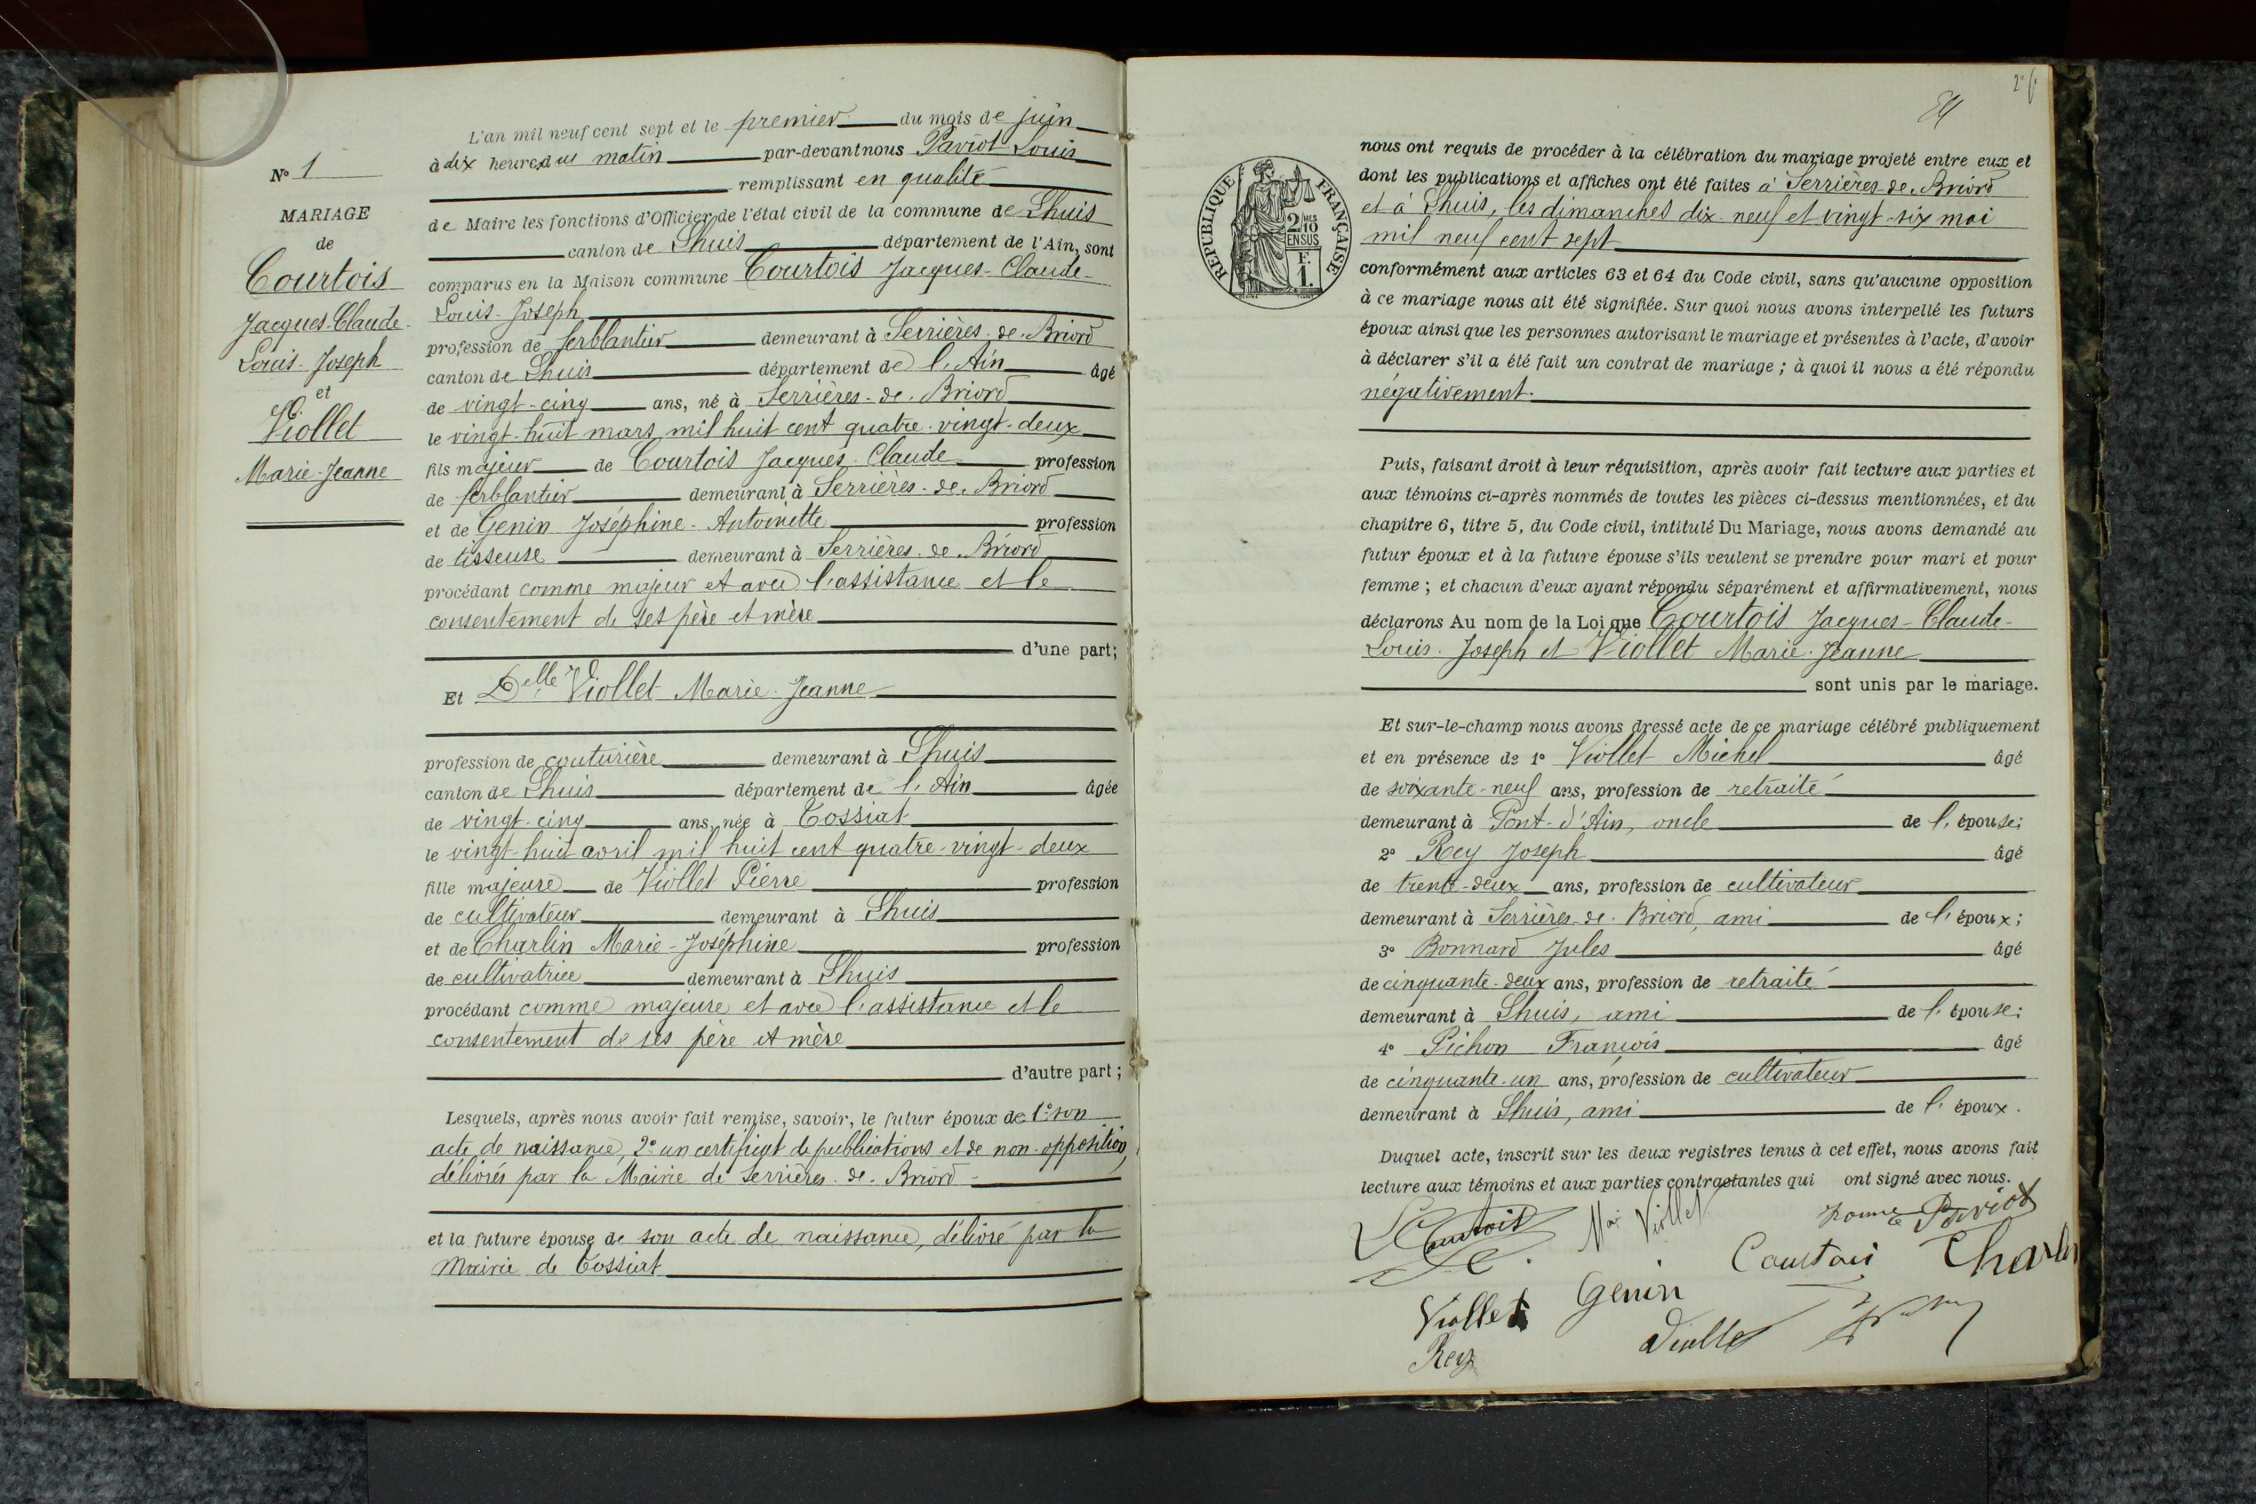 N° 1
MARIAGE
de
Courtois
Jacques-Claude-
Louis-Joseph
et
Viollet
Marie-Jeanne
L'an mil neuf cent sept et le premier du mois de juin
à dix heures du matin par-devant nous Paviot Louis
remplissant en qualité
de Maire les fonctions d'Officier de l'état civil de la commune de Lhuis
canton de Lhuis département de l'Ain, sont
comparus en la Maison commune Courtois Jacques-Claude-
Louis-Joseph
profession de ferblantier demeurant à Serrières-de-Briord
canton de Lhuis département de l'Ain âgé
de vingt-cinq ans, né à Serrières-de-Briord
le vingt-huit mars mil huit cent quatre-vingt-deux
fils majeur de Courtois Jacques-Claude profession
de ferblantier demeurant à Serrières-de-Briord
et de Genin Joséphine-Antoinette profession
de tisseuse demeurant à Serrières-de-Briord
procédant comme majeur et avec l'assistance et le
consentement de ses père et mère
d'une part;
Et Delle Viollet Marie-Jeanne
profession de couturière demeurant à Lhuis
canton de Lhuis département de l'Ain âgée
de vingt-cinq ans, née à Tossiat
le vingt-huit avril mil huit cent quatre-vingt-deux
fille majeure de Viollet Pierre profession
de cultivateur demeurant à Lhuis
et de Charlin Marie-Joséphine profession
de cultivatrice demeurant à Lhuis
procédant comme majeure et avec l'assistance et le
consentement de ses père et mère
d'autre part;
Lesquels, après nous avoir fait remise, savoir, le futur époux de 1° son
acte de naissance, 2° un certificat de publications et de non-opposition,
délivrés par la Mairie de Serrières-de-Briord
et la future épouse de son acte de naissance, délivré par la
Mairie de Tossiat
RÉPUBLIQUE FRANÇAISE
2 MES
10
EN SUS
F.
1.
nous ont requis de procéder à la célébration du mariage projeté entre eux et
dont les publications et affiches ont été faites à Serrières-de-Briord
et à Lhuis, les dimanches dix-neuf et vingt-six mai
mil neuf cent sept
conformément aux articles 63 et 64 du Code civil, sans qu'aucune opposition
à ce mariage nous ait été signifiée. Sur quoi nous avons interpellé les futurs
époux ainsi que les personnes autorisant le mariage et présentes à l'acte, d'avoir
à déclarer s'il a été fait un contrat de mariage; à quoi il nous a été répondu
négativement.
Puis, faisant droit à leur réquisition, après avoir fait lecture aux parties et
aux témoins ci-après nommés de toutes les pièces ci-dessus mentionnées, et du
chapitre 6, titre 5, du Code civil, intitulé Du Mariage, nous avons demandé au
futur époux et à la future épouse s'ils veulent se prendre pour mari et pour
femme; et chacun d'eux ayant répondu séparément et affirmativement, nous
déclarons Au nom de la Loi que Courtois Jacques-Claude-
Louis-Joseph et Viollet Marie-Jeanne
sont unis par le mariage.
Et sur-le-champ nous avons dressé acte de ce mariage célébré publiquement
et en présence de 1° Viollet Michel âgé
de soixante-neuf ans, profession de retraité
demeurant à Pont-d'Ain, oncle de l'épouse;
2° Rey Joseph âgé
de trente-deux ans, profession de cultivateur
demeurant à Serrières-de-Briord, ami de l'époux;
3° Bonnard Jules âgé
de cinquante-deux ans, profession de retraité
demeurant à Lhuis, ami de l'épouse;
4° Pichon François âgé
de cinquante-un ans, profession de cultivateur
demeurant à Lhuis, ami de l'époux.
Duquel acte, inscrit sur les deux registres tenus à cet effet, nous avons fait
lecture aux témoins et aux parties contractantes qui ont signé avec nous.
Courtois Viollet Paviot
Genin Courtois
Viollet
Rey Viollet